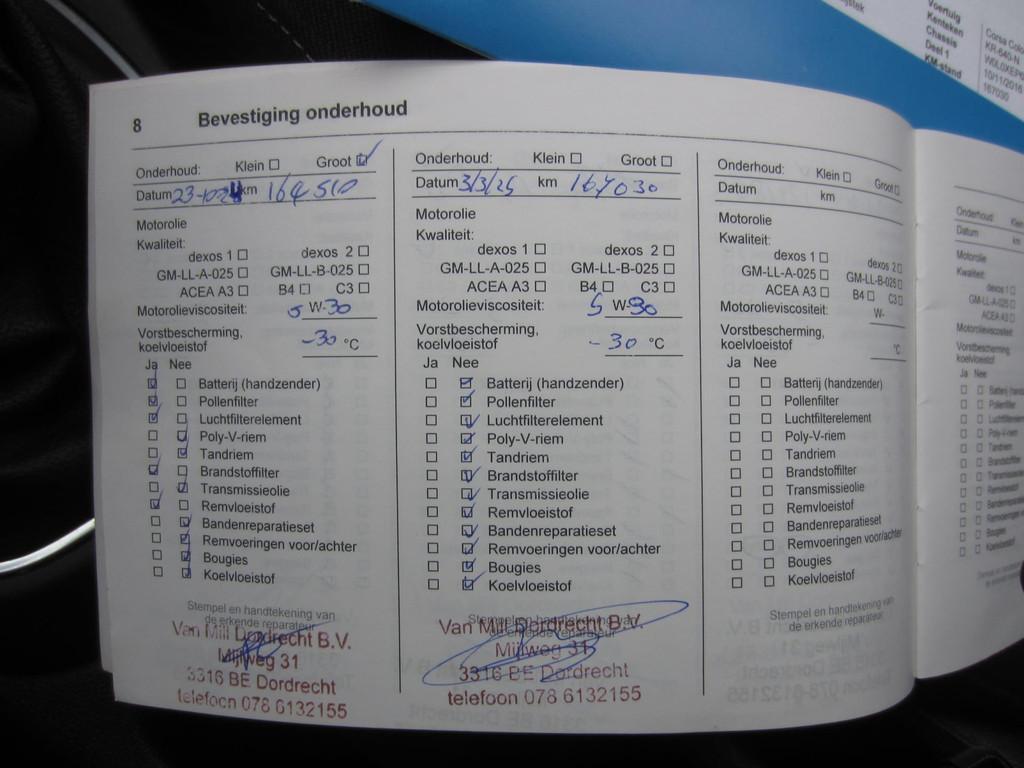 Voertuig
Kenteken
Chassis
Deel 1
KM-stand
KR-640-N
10/11/2016
167030
8 Bevestiging onderhoud
Onderhoud: Klein ☐ Groot ☑
Datum km 164510
Motorolie
Kwaliteit:
dexos 1 ☐ dexos 2 ☐
GM-LL-A-025 ☐ GM-LL-B-025 ☐
ACEA A3 ☐ B4 ☐ C3 ☐
Motorolieviscositeit: 5 W-30
Vorstbescherming,
koelvloeistof -30 °C
Ja Nee
☑ ☐ Batterij (handzender)
☑ ☐ Pollenfilter
☑ ☐ Luchtfilterelement
☐ ☑ Poly-V-riem
☐ ☑ Tandriem
☑ ☐ Brandstoffilter
☐ ☑ Transmissieolie
☑ ☐ Remvloeistof
☐ ☑ Bandenreparatieset
☐ ☑ Remvoeringen voor/achter
☐ ☑ Bougies
☐ ☑ Koelvloeistof
Stempel en handtekening van
de erkende reparateur
Van Mill Dordrecht B.V.
Mijlweg 31
3316 BE Dordrecht
telefoon 078 6132155
Onderhoud: Klein ☐ Groot ☐
Datum 3/3/25 km 167030
Motorolie
Kwaliteit:
dexos 1 ☐ dexos 2 ☐
GM-LL-A-025 ☐ GM-LL-B-025 ☐
ACEA A3 ☐ B4 ☐ C3 ☐
Motorolieviscositeit: 5 W-30
Vorstbescherming,
koelvloeistof -30 °C
Ja Nee
☐ ☑ Batterij (handzender)
☐ ☑ Pollenfilter
☐ ☑ Luchtfilterelement
☐ ☑ Poly-V-riem
☐ ☑ Tandriem
☐ ☑ Brandstoffilter
☐ ☑ Transmissieolie
☐ ☑ Remvloeistof
☐ ☑ Bandenreparatieset
☐ ☑ Remvoeringen voor/achter
☐ ☑ Bougies
☐ ☑ Koelvloeistof
Stempel en handtekening van
de erkende reparateur
Van Mill Dordrecht B.V.
Mijlweg 31
3316 BE Dordrecht
telefoon 078 6132155
Onderhoud: Klein ☐ Groot ☐
Datum km
Motorolie
Kwaliteit:
dexos 1 ☐ dexos 2 ☐
GM-LL-A-025 ☐ GM-LL-B-025 ☐
ACEA A3 ☐ B4 ☐ C3 ☐
Motorolieviscositeit: W-
Vorstbescherming,
koelvloeistof °C
Ja Nee
☐ ☐ Batterij (handzender)
☐ ☐ Pollenfilter
☐ ☐ Luchtfilterelement
☐ ☐ Poly-V-riem
☐ ☐ Tandriem
☐ ☐ Brandstoffilter
☐ ☐ Transmissieolie
☐ ☐ Remvloeistof
☐ ☐ Bandenreparatieset
☐ ☐ Remvoeringen voor/achter
☐ ☐ Bougies
☐ ☐ Koelvloeistof
Stempel en handtekening van
de erkende reparateur
Onderhoud:
Datum
Motorolie
Kwaliteit:
dexos 1 ☐
Ja Nee